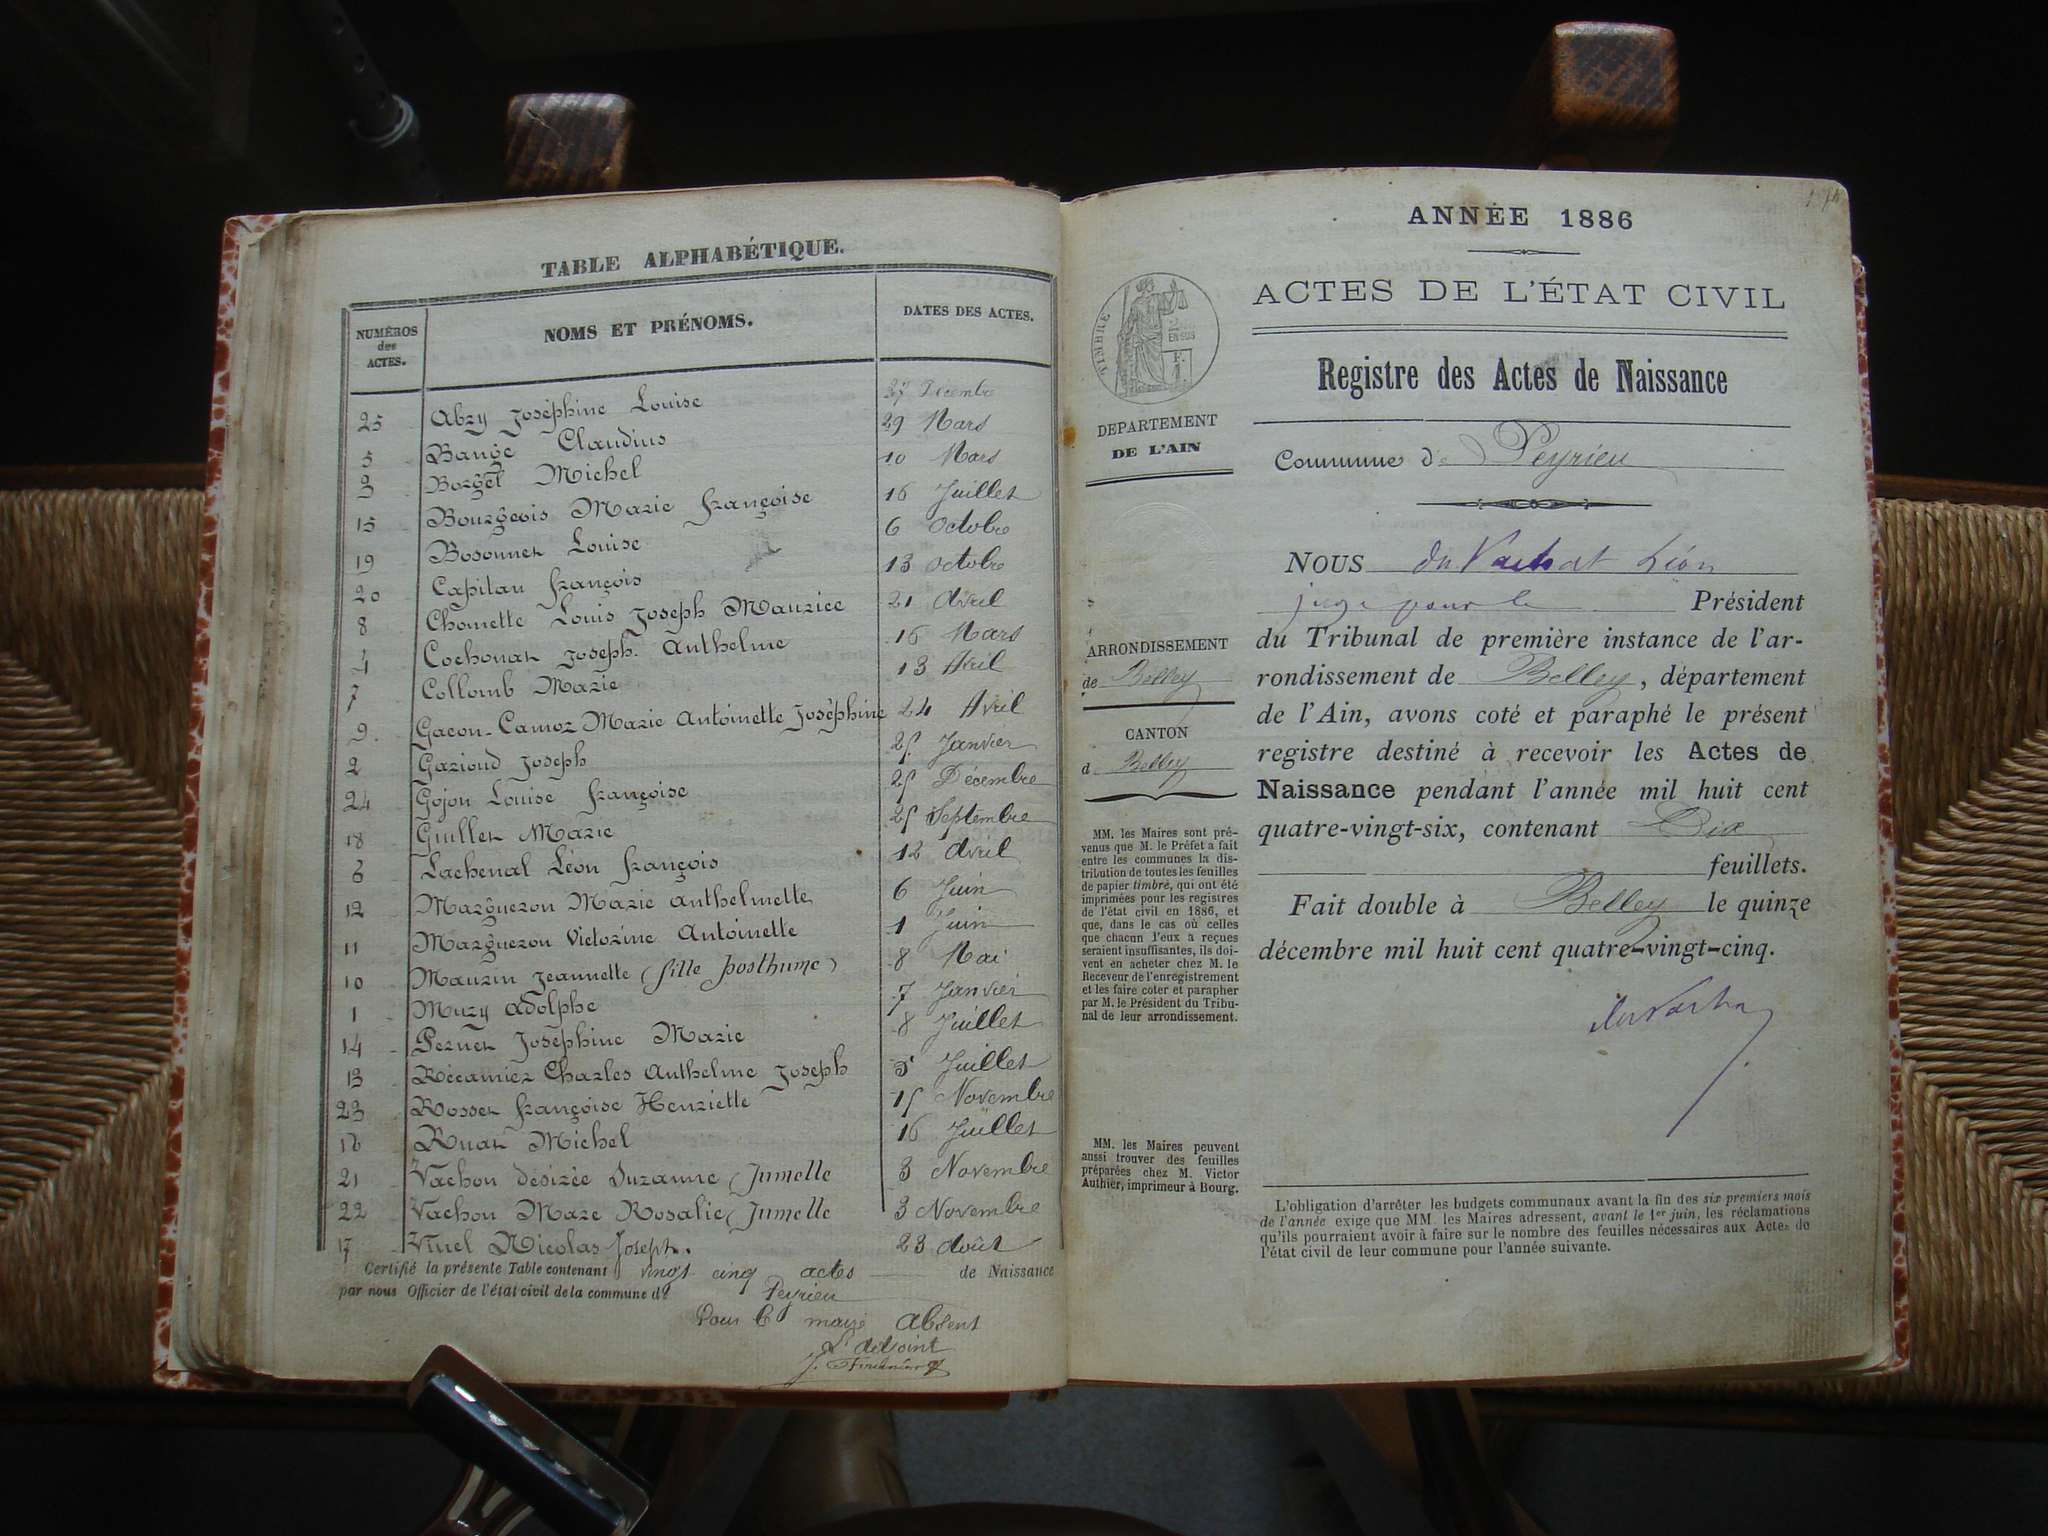 TABLE ALPHABÉTIQUE.
NUMÉROS des ACTES. NOMS ET PRÉNOMS. DATES DES ACTES.
25 Abry Joséphine Louise 27 Décembre
5 Bange Claudius 29 Mars
3 Borgel Michel 10 Mars
15 Bourgeois Marie Françoise 16 Juillet
19 Bosonnet Louise 6 Octobre
20 Capitan François 13 Octobre
8 Chomette Louis Joseph Maurice 21 Avril
4 Cochonat Joseph Anthelme 16 Mars
7 Collomb Marie 13 Avril
9. Gacon-Camoz Marie Antoinette Joséphine 24 Avril
2 Garioud Joseph 25 Janvier
24 Gojon Louise Françoise 25 Décembre
18 Guillet Marie 25 Septembre
6 Lachenal Léon François 12 Avril
12 Margueron Marie Anthelmette 6 Juin
11 Margueron Victorine Antoinette 1 Juin
10 Maurin Jeannette (fille posthume) 8 Mai
1 Muzy Adolphe 7 Janvier
14 Pernet Joséphine Marie 8 Juillet
13 Récamier Charles Anthelme Joseph 5 Juillet
23 Rosset Françoise Henriette 15 Novembre
16 Ruat Michel 16 Juillet
21 Vachon désirée Suzanne (Jumelle 3 Novembre
22 Vachon Marie Rosalie (Jumelle 3 Novembre
17 Vinel Nicolas Joseph. 23 Août
Certifié la présente Table contenant vingt cinq actes de Naissance
par nous Officier de l'état civil de la commune de Peyrieu
Pour le maire Absent
L'adjoint
ANNÉE 1886
ACTES DE L'ÉTAT CIVIL
Registre des Actes de Naissance
Commune de Peyrieu
TIMBRE
2/10 EN SUS
DÉPARTEMENT
DE L'AIN
ARRONDISSEMENT
de Belley
CANTON
d Belley
MM. les Maires sont pré-
venus que M. le Préfet a fait
entre les communes la dis-
tribution de toutes les feuilles
de papier timbré, qui ont été
imprimées pour les registres
de l'état civil en 1886, et
que, dans le cas où celles
que chacun d'eux a reçues
seraient insuffisantes, ils doi-
vent en acheter chez M. le
Receveur de l'enregistrement
et les faire coter et parapher
par M. le Président du Tribu-
nal de leur arrondissement.
MM. les Maires peuvent
aussi trouver des feuilles
préparées chez M. Victor
Authier, imprimeur à Bourg.
NOUS du Vachat Léon
juge pour le Président
du Tribunal de première instance de l'ar-
rondissement de Belley, département
de l'Ain, avons coté et paraphé le présent
registre destiné à recevoir les Actes de
Naissance pendant l'année mil huit cent
quatre-vingt-six, contenant Dix
feuillets.
Fait double à Belley le quinze
décembre mil huit cent quatre-vingt-cinq.
L'obligation d'arrêter les budgets communaux avant la fin des six premiers mois
de l'année exige que MM. les Maires adressent, avant le 1er juin, les réclamations
qu'ils pourraient avoir à faire sur le nombre des feuilles nécessaires aux Actes de
l'état civil de leur commune pour l'année suivante.